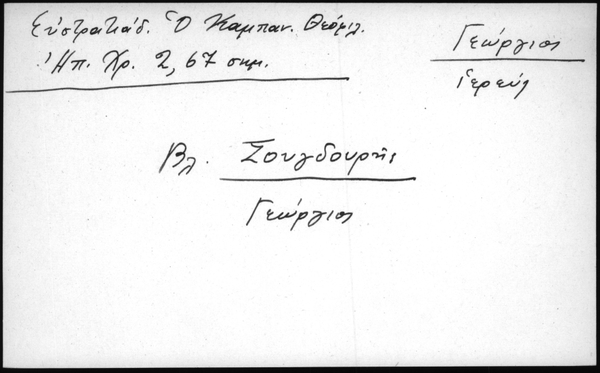 Εὐστρατιάδ. Ὁ Καμπαν. Θεόφιλ.
Ἠπ. Χρ. 2, 67 σημ.
Γεώργιος
Ἱερεύς
Βλ. Σουγδουρῆς
Γεώργιος